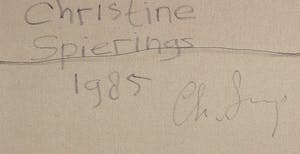 Christine
Spierings
1985
Ch.